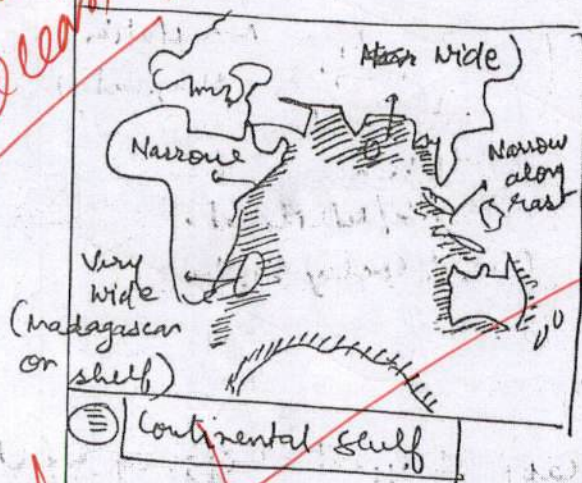 Wide
Narrow
Narrow
along
East
Very
Wide
(Madagascar
on
shelf)
Continental shelf